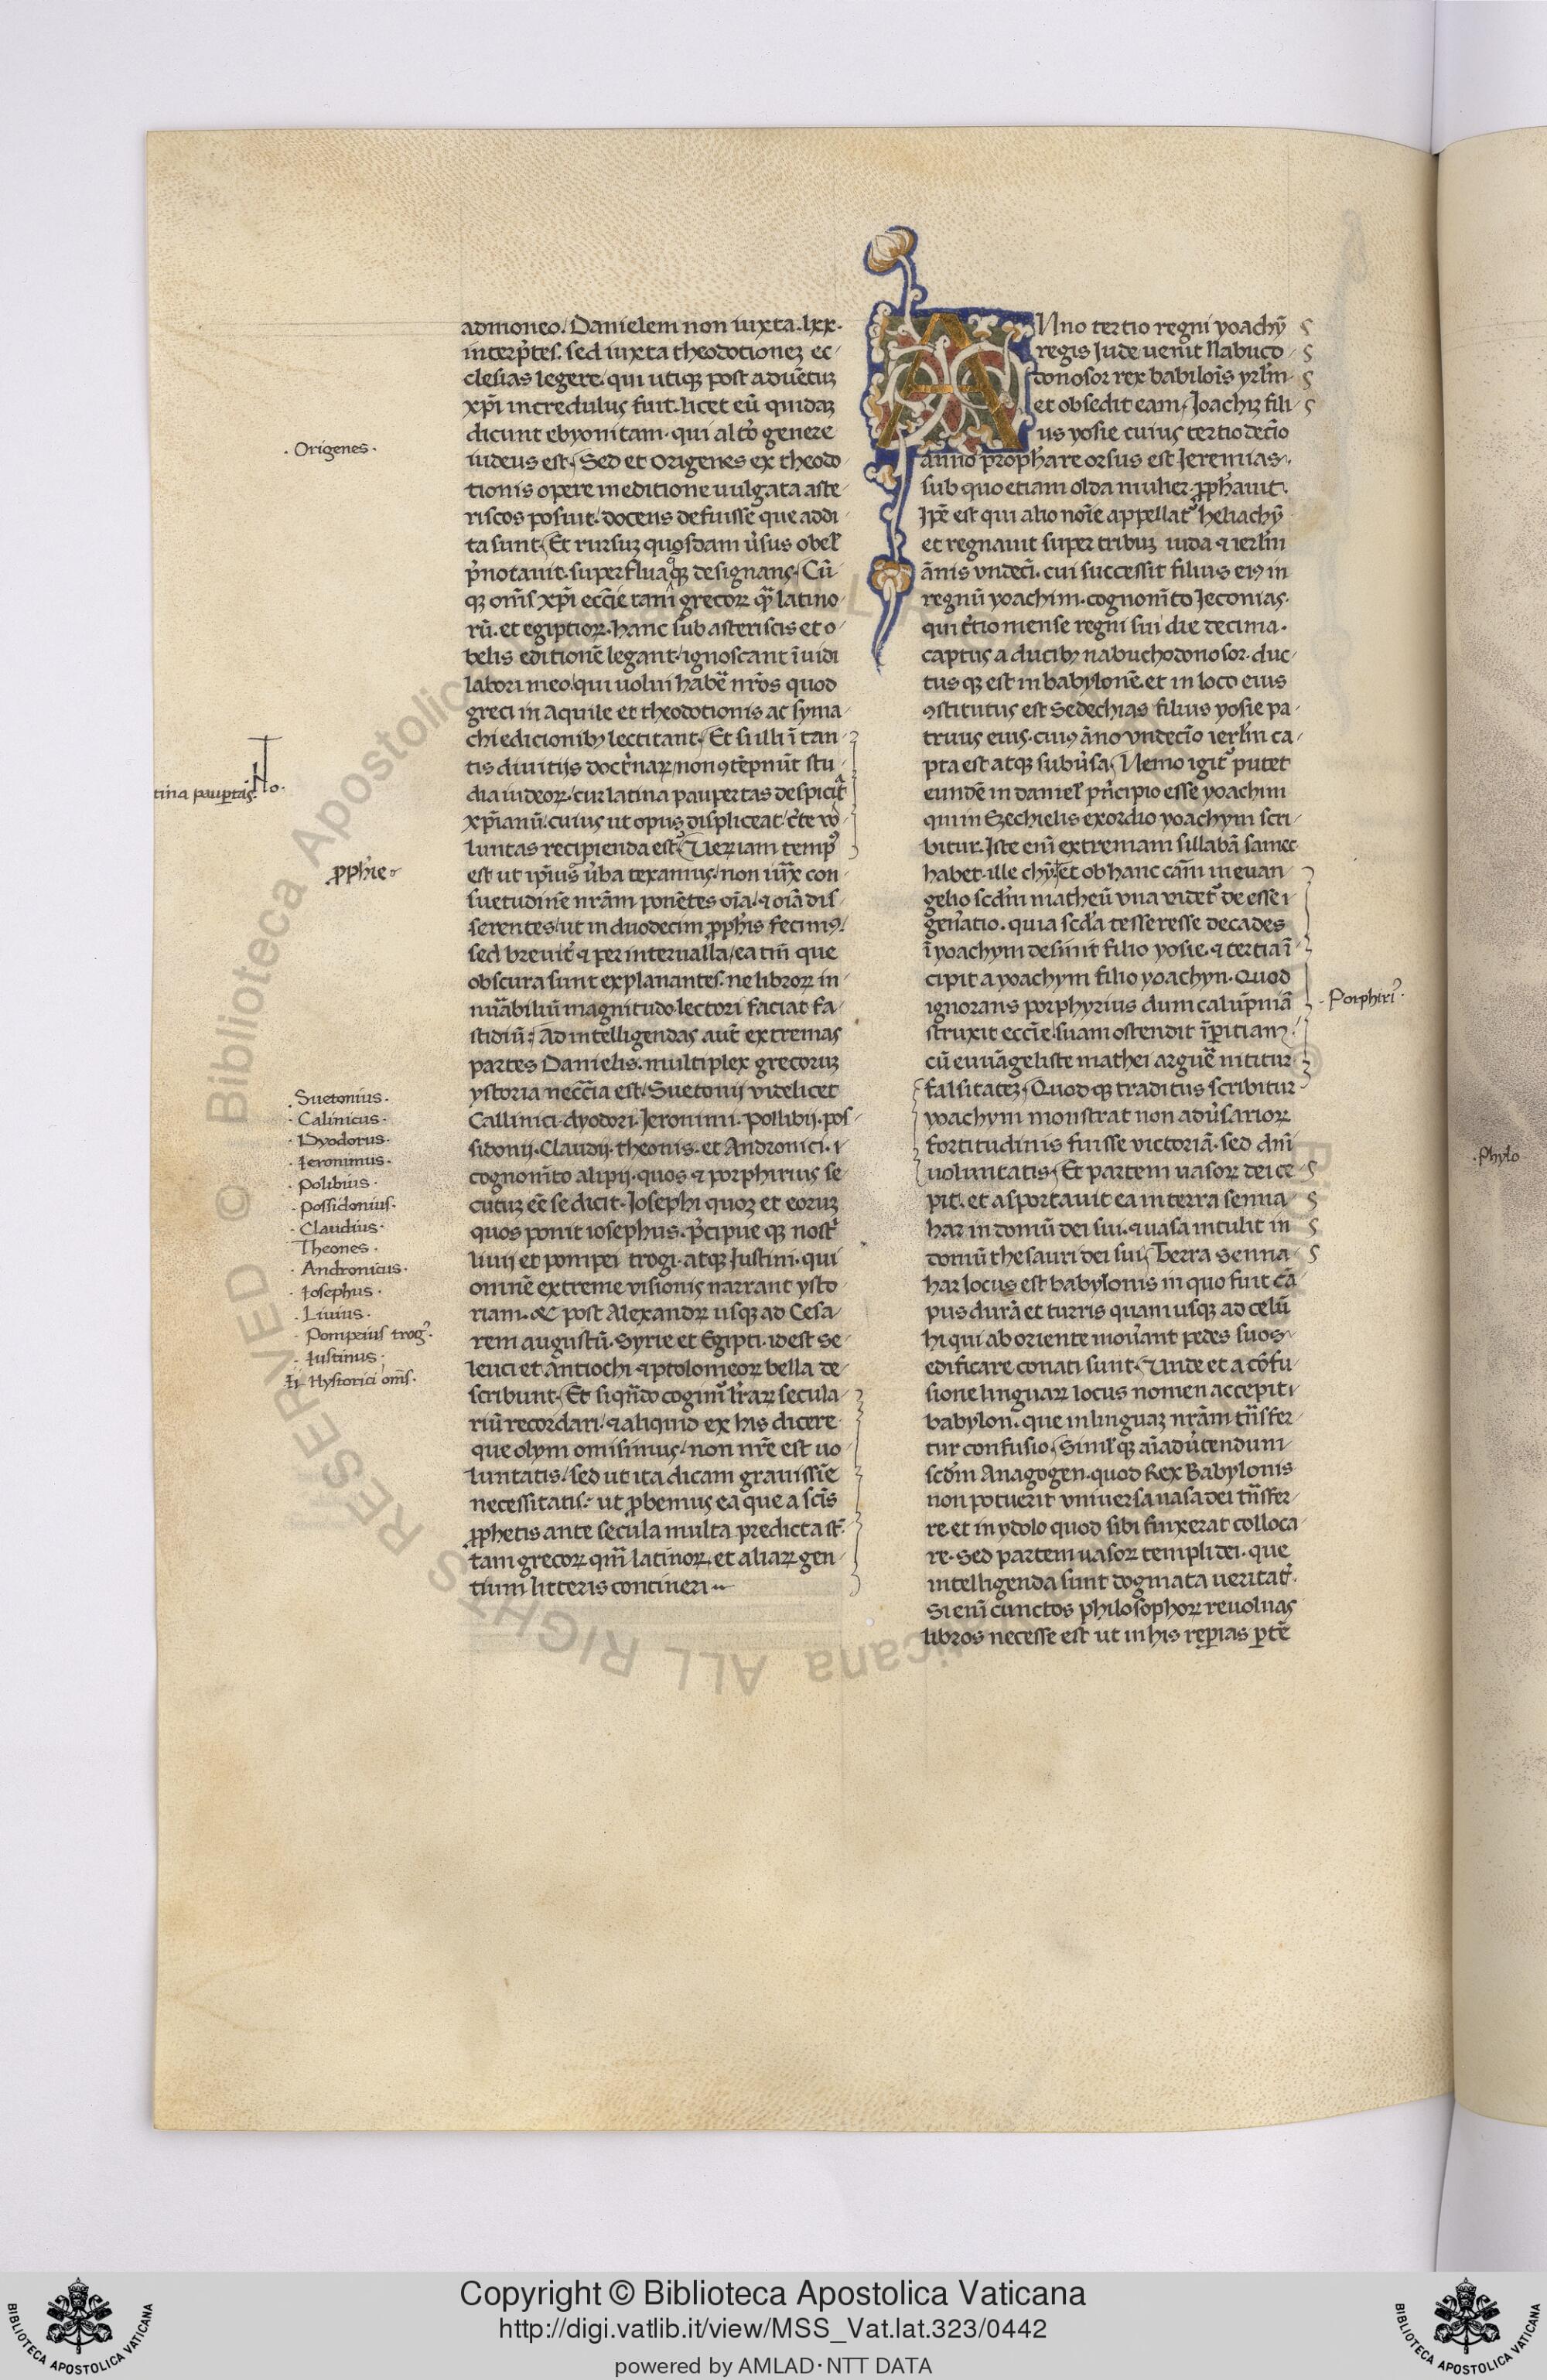 admoneo. Danielem non iuxta .lxx.
interp̃tes. sed iuxta theodotionez ec-
clesias legere. qui utiqꝫ post aduẽtuz
xp̃i incredulus fuit. licet eũ quidaz
dicunt ebyonitam. qui alt̾o genere
iudeus est. Sed et Origenes ex theodo-
tionis opere in editione uulgata aste-
riscos posuit. docens defuisse que addi-
ta sunt. Et rursuz quosdam ũsus obel̃
p̃notauit. superflua qꝫ designans. Cũ-
qꝫ om̃s xp̃i ecc̃ie tam grecoꝝ qꝫ̃ latino-
rũ. et egiptioꝝ. hanc sub asteriscis et o-
belis editionẽ legant. ignoscant ĩuidi
labori meo. qui uolui habẽ nr̃os quod
greci in Aquile et theodotionis ac syma-
chi edicionibꝰ lectitant. Et si illi ĩ tan-
tis diuitijs doct̾naꝝ non ꝯtẽpnũt stu-
dia iudeoꝝ. cur latina paupertas despicit
xp̃ianũ. cuius ut opus displiceat. c̾te uo-
luntas recipienda est. Ueꝝ iam temp9
est ut ip̃ius ũba texamus. non iux̃ con-
suetudinẽ nr̃am ponẽtes oĩa. ⁊ oĩa dis-
serentes. ut in duodecim ꝓph̾is fecim9.
sed breuit̾ ⁊ per interualla. ea tm̃ que
obscura sunt explanantes. ne libroꝝ in-
nũabiliũ magnitudo lectori faciat fa-
stidiũ. Ad intelligendas aut̃ extremas
partes Danielis. multiplex grecoruz
ystoria necc̃ia est. Suetonij uidelicet
Callinici. dyodori. Jeronimi. Pollibij. pos-
sidonij. Claudij. theonis. et Andronici. ⁊
cognom̃to alipij. quos ⁊ porphirius se-
cutuz eẽ se dicit. Josephi quoꝫ et eoruz
quos ponit iosephus. p̃cipue qꝫ nost̾
liuij et pompei trogi. atqꝫ Justini. qui
omnẽ extreme visionis narrant ysto-
riam. & post Alexandꝝ usqꝫ ad Cesa-
rem augustũ. Syrie et Egipti. idest Se-
leuci et antiochi ⁊ ptolomeoꝝ bella de-
scribunt. Et si qñdo cogim̃ lr̃aꝝ secula-
riũ recordari. ⁊ aliquid ex his dicere
que olym omisimus. non nr̃e est uo-
luntatis. sed ut ita dicam grauissĩe
necessitatis. ut ꝓbemus ea que a sc̃is
ꝓphetis ante secula multa predicta st̃.
tam grecoꝝ qm̃ latinoꝝ. et aliaꝝ gen-
tium litteris contineri
Anno tertio regni yoachỹ
regis Jude uenit Nabuco-
donosor rex babilõis yrl̃m
et obsedit eam. Joachiz fili-
us yosie cuius tertio decĩo
anno proph̾are orsus est Jeremias.
sub quo etiam olda mulier ꝓph̾auit.
Ip̃e est qui alio noĩe appellat̾ heliachỹ
et regnauit super tribuz iuda ⁊ ierl̃m
ãnis vndecĩ. cui successit filius ei9 in
regnũ yoachim. cognom̃to Jeconias.
qui t̾tio mense regni sui die decima.
captus a ducibꝰ nabuchodonosor. duc-
tus qꝫ est in babylonẽ. et in loco eius
ꝯstitutus est Sedechias filius yosie pa-
truus eius. cui9 ãno vndecĩo ierl̃m ca-
pta est atqꝫ subũsa. Nemo igit̾ putet
eundẽ in daniel̃ pñcipio esse yoachim
qui in Ezechielis exordio yoachym scri-
bitur. Iste enĩ extremam sillabã samec
habet. ille chỹ. et ob hanc cãm in euan-
gelio scd̃m matheũ vna uidet̾ deesse
geñatio. quia scd̃a tesseresse decades
ĩ yoachym desinit filio yosie. ⁊ tertia ĩ-
cipit a yoachym filio yoachyn. Quod
ignorans porphyrius dum calũpniã
struxit ecc̃ie. suam ostendit ĩperitiam.
cũ euuãgeliste mathei arguẽ nititur
falsitatez. Quod qꝫ traditus scribitur
yoachym monstrat non aduersarioꝝ
fortitudinis fuisse victoriã. sed dñi
uoluntatis. Et partem uasoꝝ dei ce-
pit. et asportauit ea in terra senna-
har in domũ dei sui. ⁊ uasa intulit in
domũ thesauri dei sui. Terra senna-
har locus est babylonis in quo fuit cã-
pus durã et turris quam usqꝫ ad celũ
hi qui ab oriente moũant pedes suos
edificare conati sunt. Unde et a cõfu-
sione linguaꝝ locus nomen accepit
babylon. que in linguaz nr̃am tñsfer-
tur confusio. Simł qꝫ aĩaduertendum
scd̃m Anagogen. quod Rex Babylonis
non potuerit vniuersa uasa dei tñsfer-
re. et in ydolo quod sibi finxerat colloca-
re. Sed partem uasoꝝ templi dei. que
intelligenda sunt dogmata ueritat̾.
Si enĩ cunctos philosophoꝝ reuoluas
libros necesse est ut in his reꝑias ꝑtẽ
. Origenes .
tina paup̾tas
ꝓph̾ie
. Suetonius .
. Calinicus .
. Dyodorus .
. Ieronimus .
. Polibius .
. Possidonius .
. Claudius .
Theones .
. Andronicus .
. Iosephus .
. Liuius .
. Pompeius trog9 .
. Iustinus .
Hystorici om̃s .
. Porphiri9 .
. Phylo
© Biblioteca Apostolica Vaticana ALL RIGHTS RESERVED
Copyright © Biblioteca Apostolica Vaticana
http://digi.vatlib.it/view/MSS_Vat.lat.323/0442
powered by AMLAD·NTT DATA
BIBLIOTECA APOSTOLICA VATICANA
BIBLIOTECA APOSTOLICA VATICANA